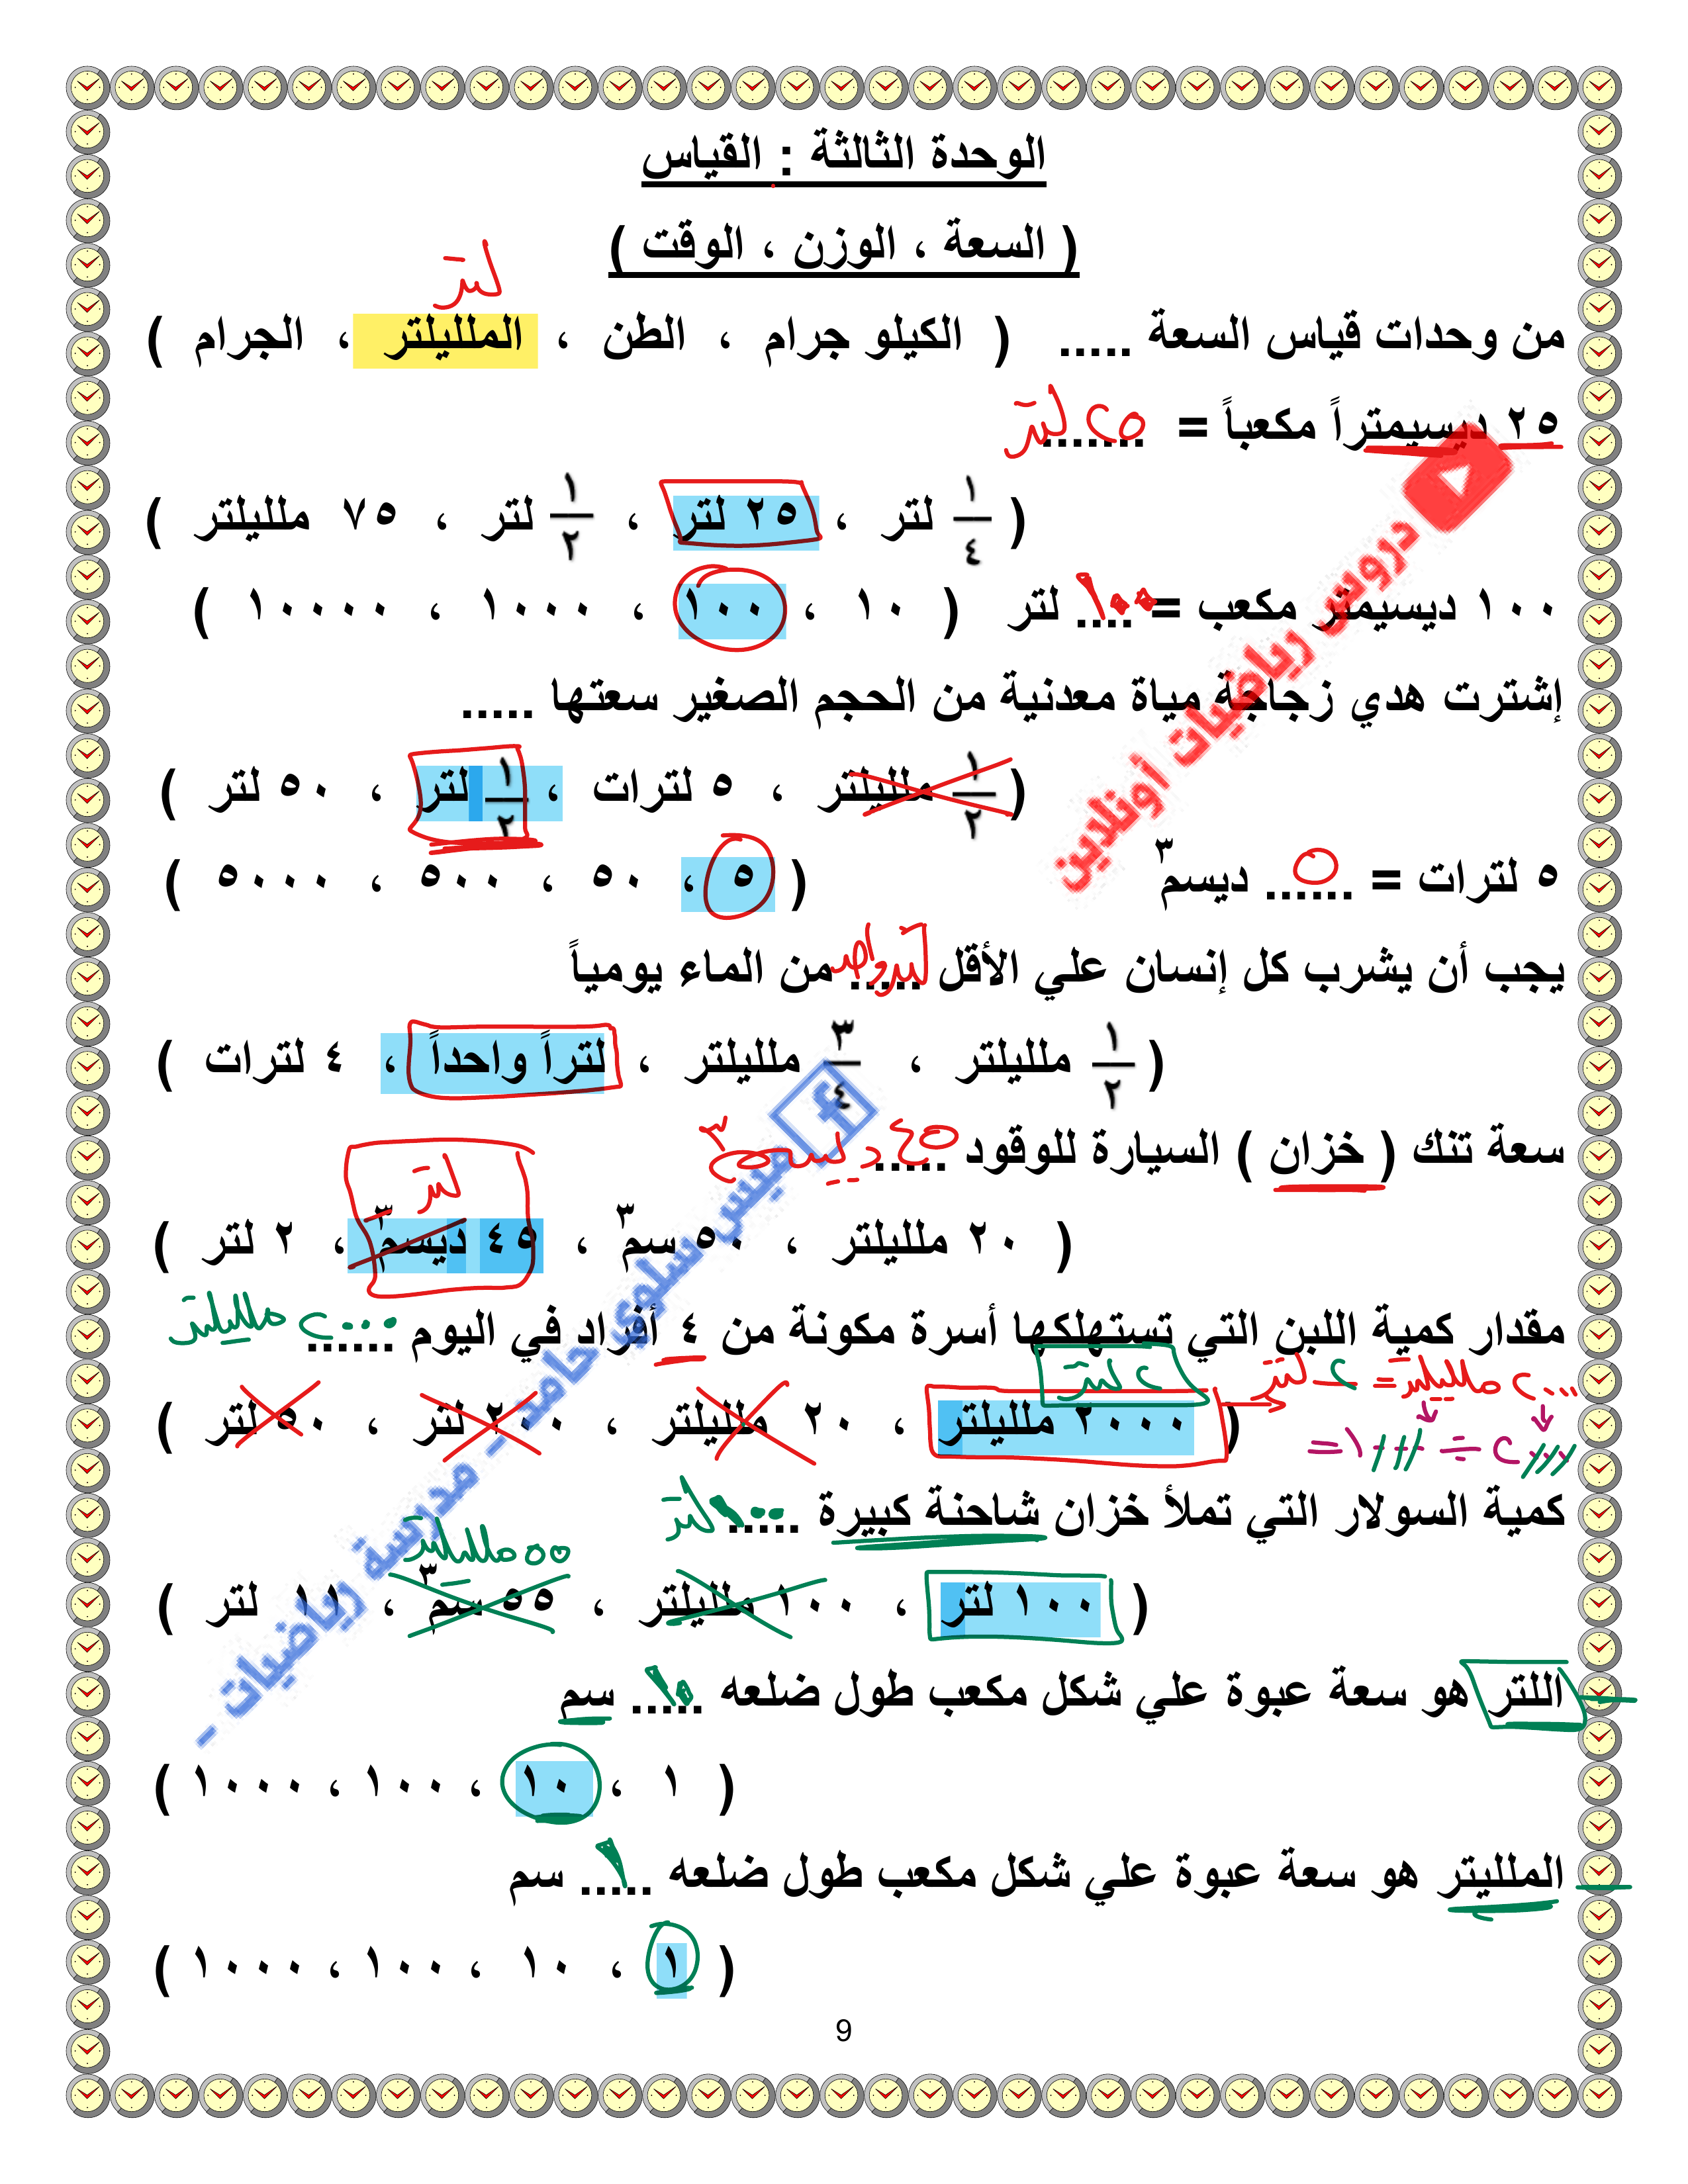 الوحدة الثالثة : القياس
( السعة ، الوزن ، الوقت )
لتر
من وحدات قياس السعة ..... ( الكيلو جرام ، الطن ، الملليلتر ، الجرام )
٢٥ ديسيمتراً مكعباً = ....... ٢٥ لتر
( ١/٤ لتر ، ٢٥ لتر ، ١/٢ لتر ، ٧٥ ملليلتر )
١٠٠ ديسيمتر مكعب = .... ١٠٠ لتر ( ١٠ ، ١٠٠ ، ١٠٠٠ ، ١٠٠٠٠ )
إشترت هدي زجاجة مياة معدنية من الحجم الصغير سعتها .....
( ١/٢ ملليلتر ، ٥ لترات ، ١/٢ لتر ، ٥٠ لتر )
٥ لترات = ...... ٥ ديسم٣ ( ٥ ، ٥٠ ، ٥٠٠ ، ٥٠٠٠ )
يجب أن يشرب كل إنسان علي الأقل ..... لتر واحد من الماء يومياً
( ١/٢ ملليلتر ، ٣/٤ ملليلتر ، لتراً واحداً ، ٤ لترات )
سعة تنك ( خزان ) السيارة للوقود ..... ٤٥ ديسم٣
لتر
( ٢٠ ملليلتر ، ٥٠ سم٣ ، ٤٥ ديسم٣ ، ٢ لتر )
مقدار كمية اللبن التي تستهلكها أسرة مكونة من ٤ أفراد في اليوم ...... ٢٠٠٠ ملليلتر
٢ لتر
٢٠٠٠ ملليلتر = ٢ لتر
( ٢٠٠٠ ملليلتر ، ٢٠ ملليلتر ، ٢٠٠ لتر ، ٥٠ لتر )
٢٠٠٠ ÷ ١٠٠٠ =
كمية السولار التي تملأ خزان شاحنة كبيرة ..... ١٠٠ لتر
٥٥ ملليلتر
( ١٠٠ لتر ، ١٠٠ ملليلتر ، ٥٥ سم٣ ، ١١ لتر )
اللتر هو سعة عبوة علي شكل مكعب طول ضلعه ..... ١٠ سم
( ١ ، ١٠ ، ١٠٠ ، ١٠٠٠ )
الملليتر هو سعة عبوة علي شكل مكعب طول ضلعه ..... ١ سم
( ١ ، ١٠ ، ١٠٠ ، ١٠٠٠ )
9
دروس رياضيات أونلاين
ميس سلوى حامد - مدرسة رياضيات -